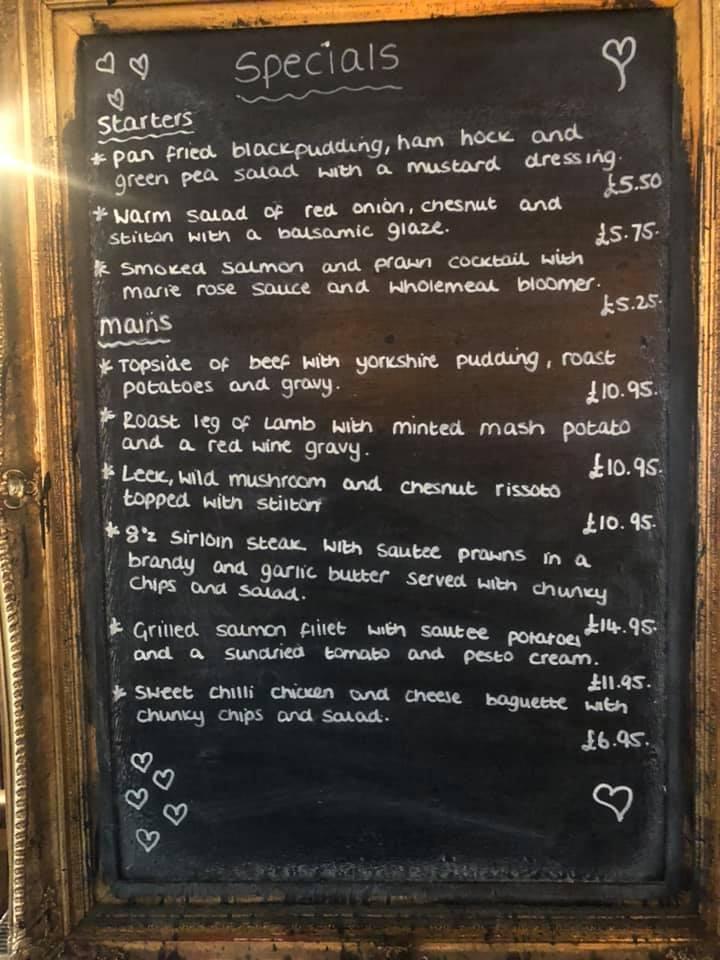 Specials
Starters
* Pan fried blackpudding, ham hock and
green pea salad with a mustard dressing.
£5.50
* Warm salad of red onion, chesnut and
stilton with a balsamic glaze.
£5.75.
* Smoked salmon and prawn cocktail with
marie rose sauce and wholemeal bloomer.
£5.25.
mains
* Topside of beef with yorkshire pudding, roast
potatoes and gravy.
£10.95.
* Roast leg of Lamb with minted mash potato
and a red wine gravy.
£10.95.
* Leek, wild mushroom and chesnut rissoto
topped with stilton
£10.95.
* 8°z Sirloin steak with sautee prawns in a
brandy and garlic butter served with chunky
chips and salad.
£14.95.
* Grilled salmon fillet with sautee potatoes
and a sundried tomato and pesto cream.
£11.95.
* Sweet chilli chicken and cheese baguette with
chunky chips and salad.
£6.95.